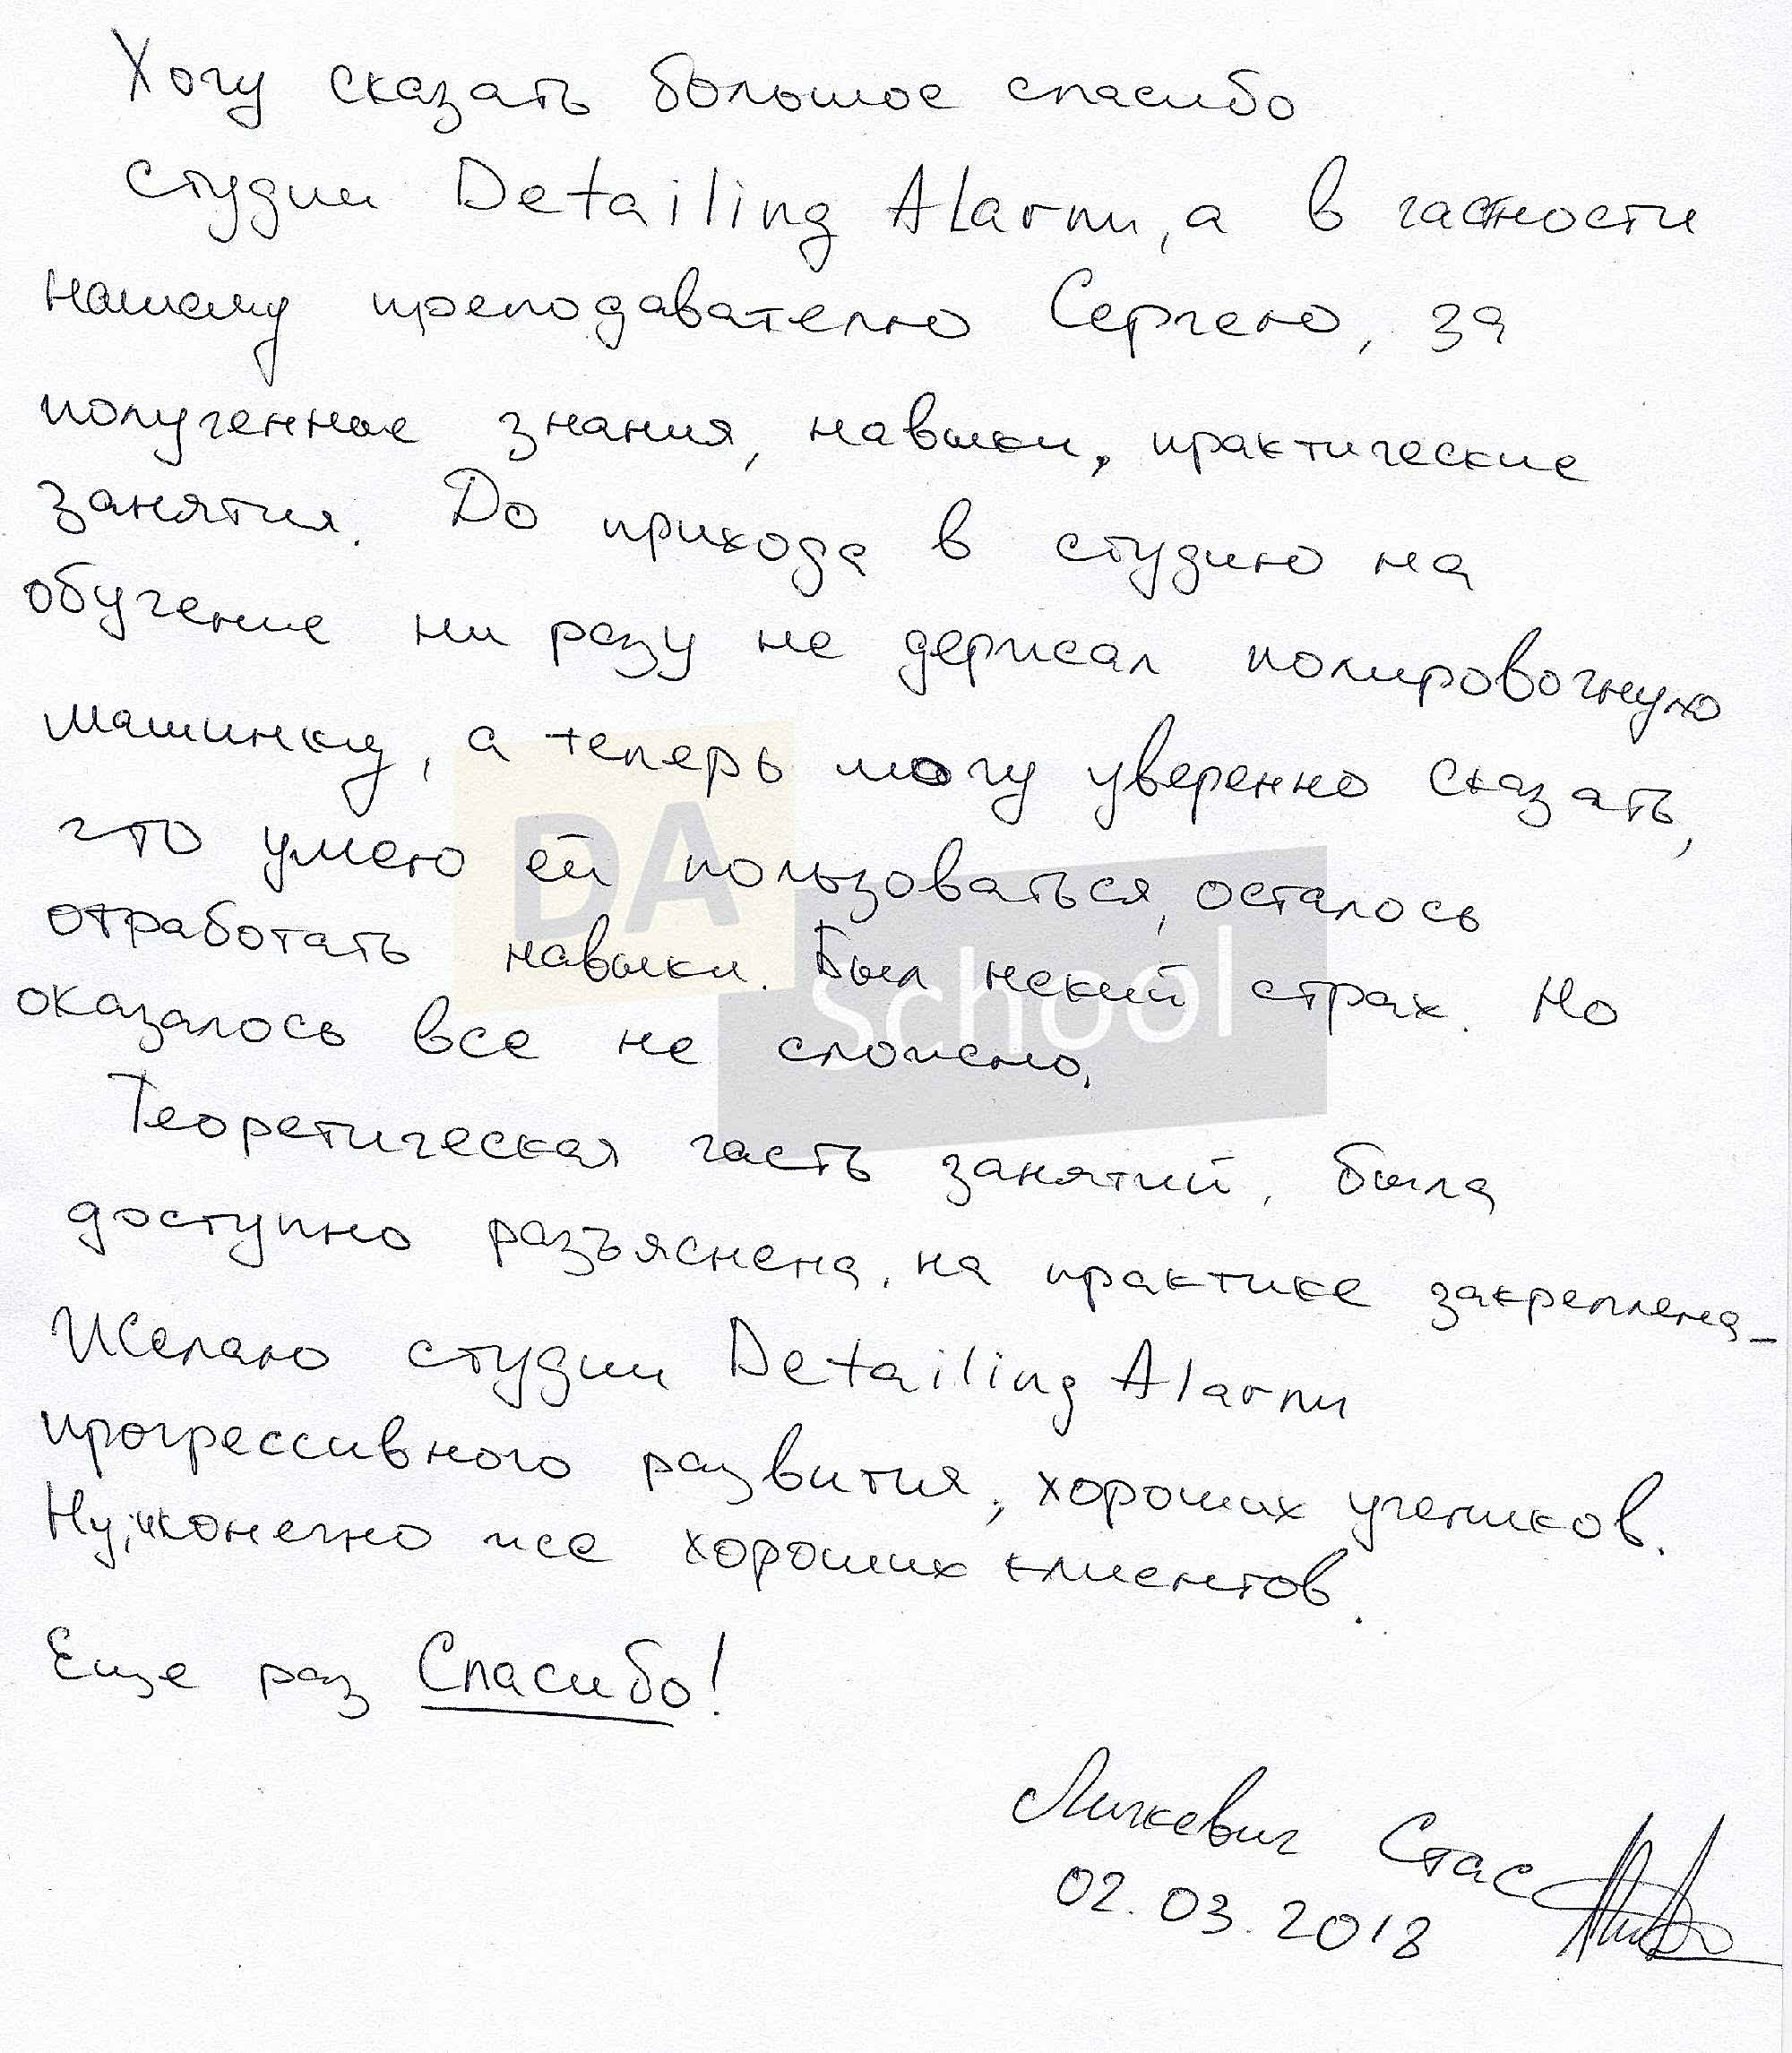 Хочу сказать большое спасибо
студии Detailing Alarm, а в частности
нашему преподавателю Сергею, за
полученные знания, навыки, практические
занятия. До прихода в студию на
обучение ни разу не держал полировочную
машинку, а теперь могу уверенно сказать,
что умею ей пользоваться, осталось
отработать навыки. Был некий страх. Но
оказалось все не сложно.
Теоретическая часть занятий, была
доступно разъяснена, на практике закреплена_
Желаю студии Detailing Alarm
прогрессивного развития, хороших учеников.
Ну, и конечно же хороших клиентов.
Еще раз Спасибо!
Личкевич Стас
02.03.2018
DA
school